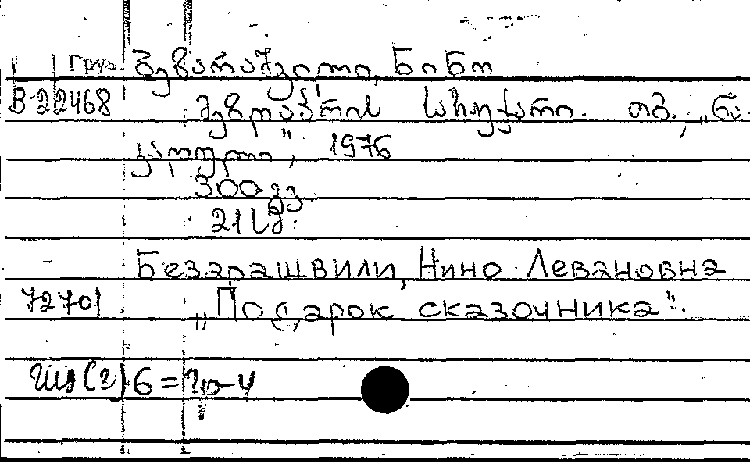 Груз ბეზარაშვილი, ნინო
В-22468 მეზღაპრის საჩუქარი. თბ., „ნა
კადული", 1976
300 გვ.
21 სმ.
Безарашвили, Нино Левановна
72701 „Подарок сказочника".
6 =